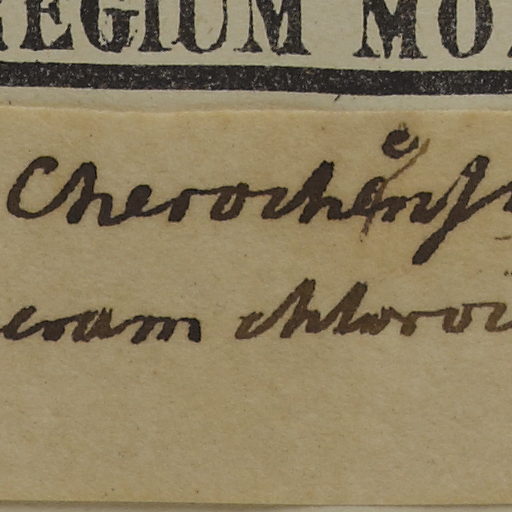 REGIUM MO
Cherochens
eram chloroc